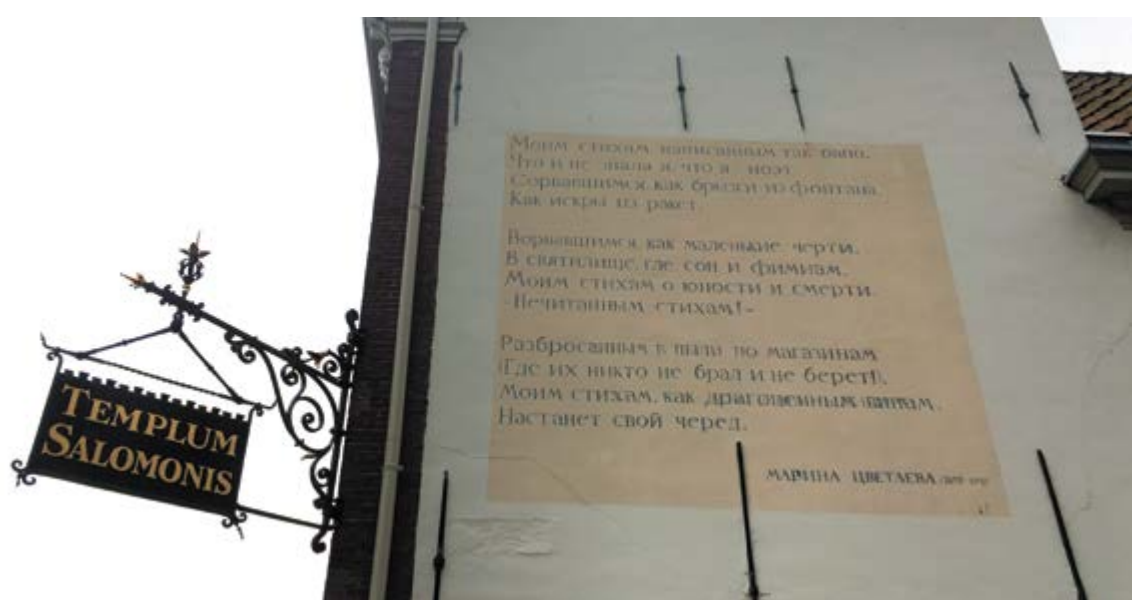 TEMPLUM
SALOMONIS
Моим стихам, написанным так рано,
Что и не знала я, что я поэт,
Сорвавшимся, как брызги из фонтана,
Как искры из ракет,
Ворвавшимся, как маленькие черти,
В святилище, где сон и фимиам,
Моим стихам о юности и смерти,
-Нечитанным стихам!-
Разбросанным в пыли по магазинам
(Где их никто не брал и не берет!),
Моим стихам, как драгоценным винам,
Настанет свой черед.
МАРИНА ЦВЕТАЕВА